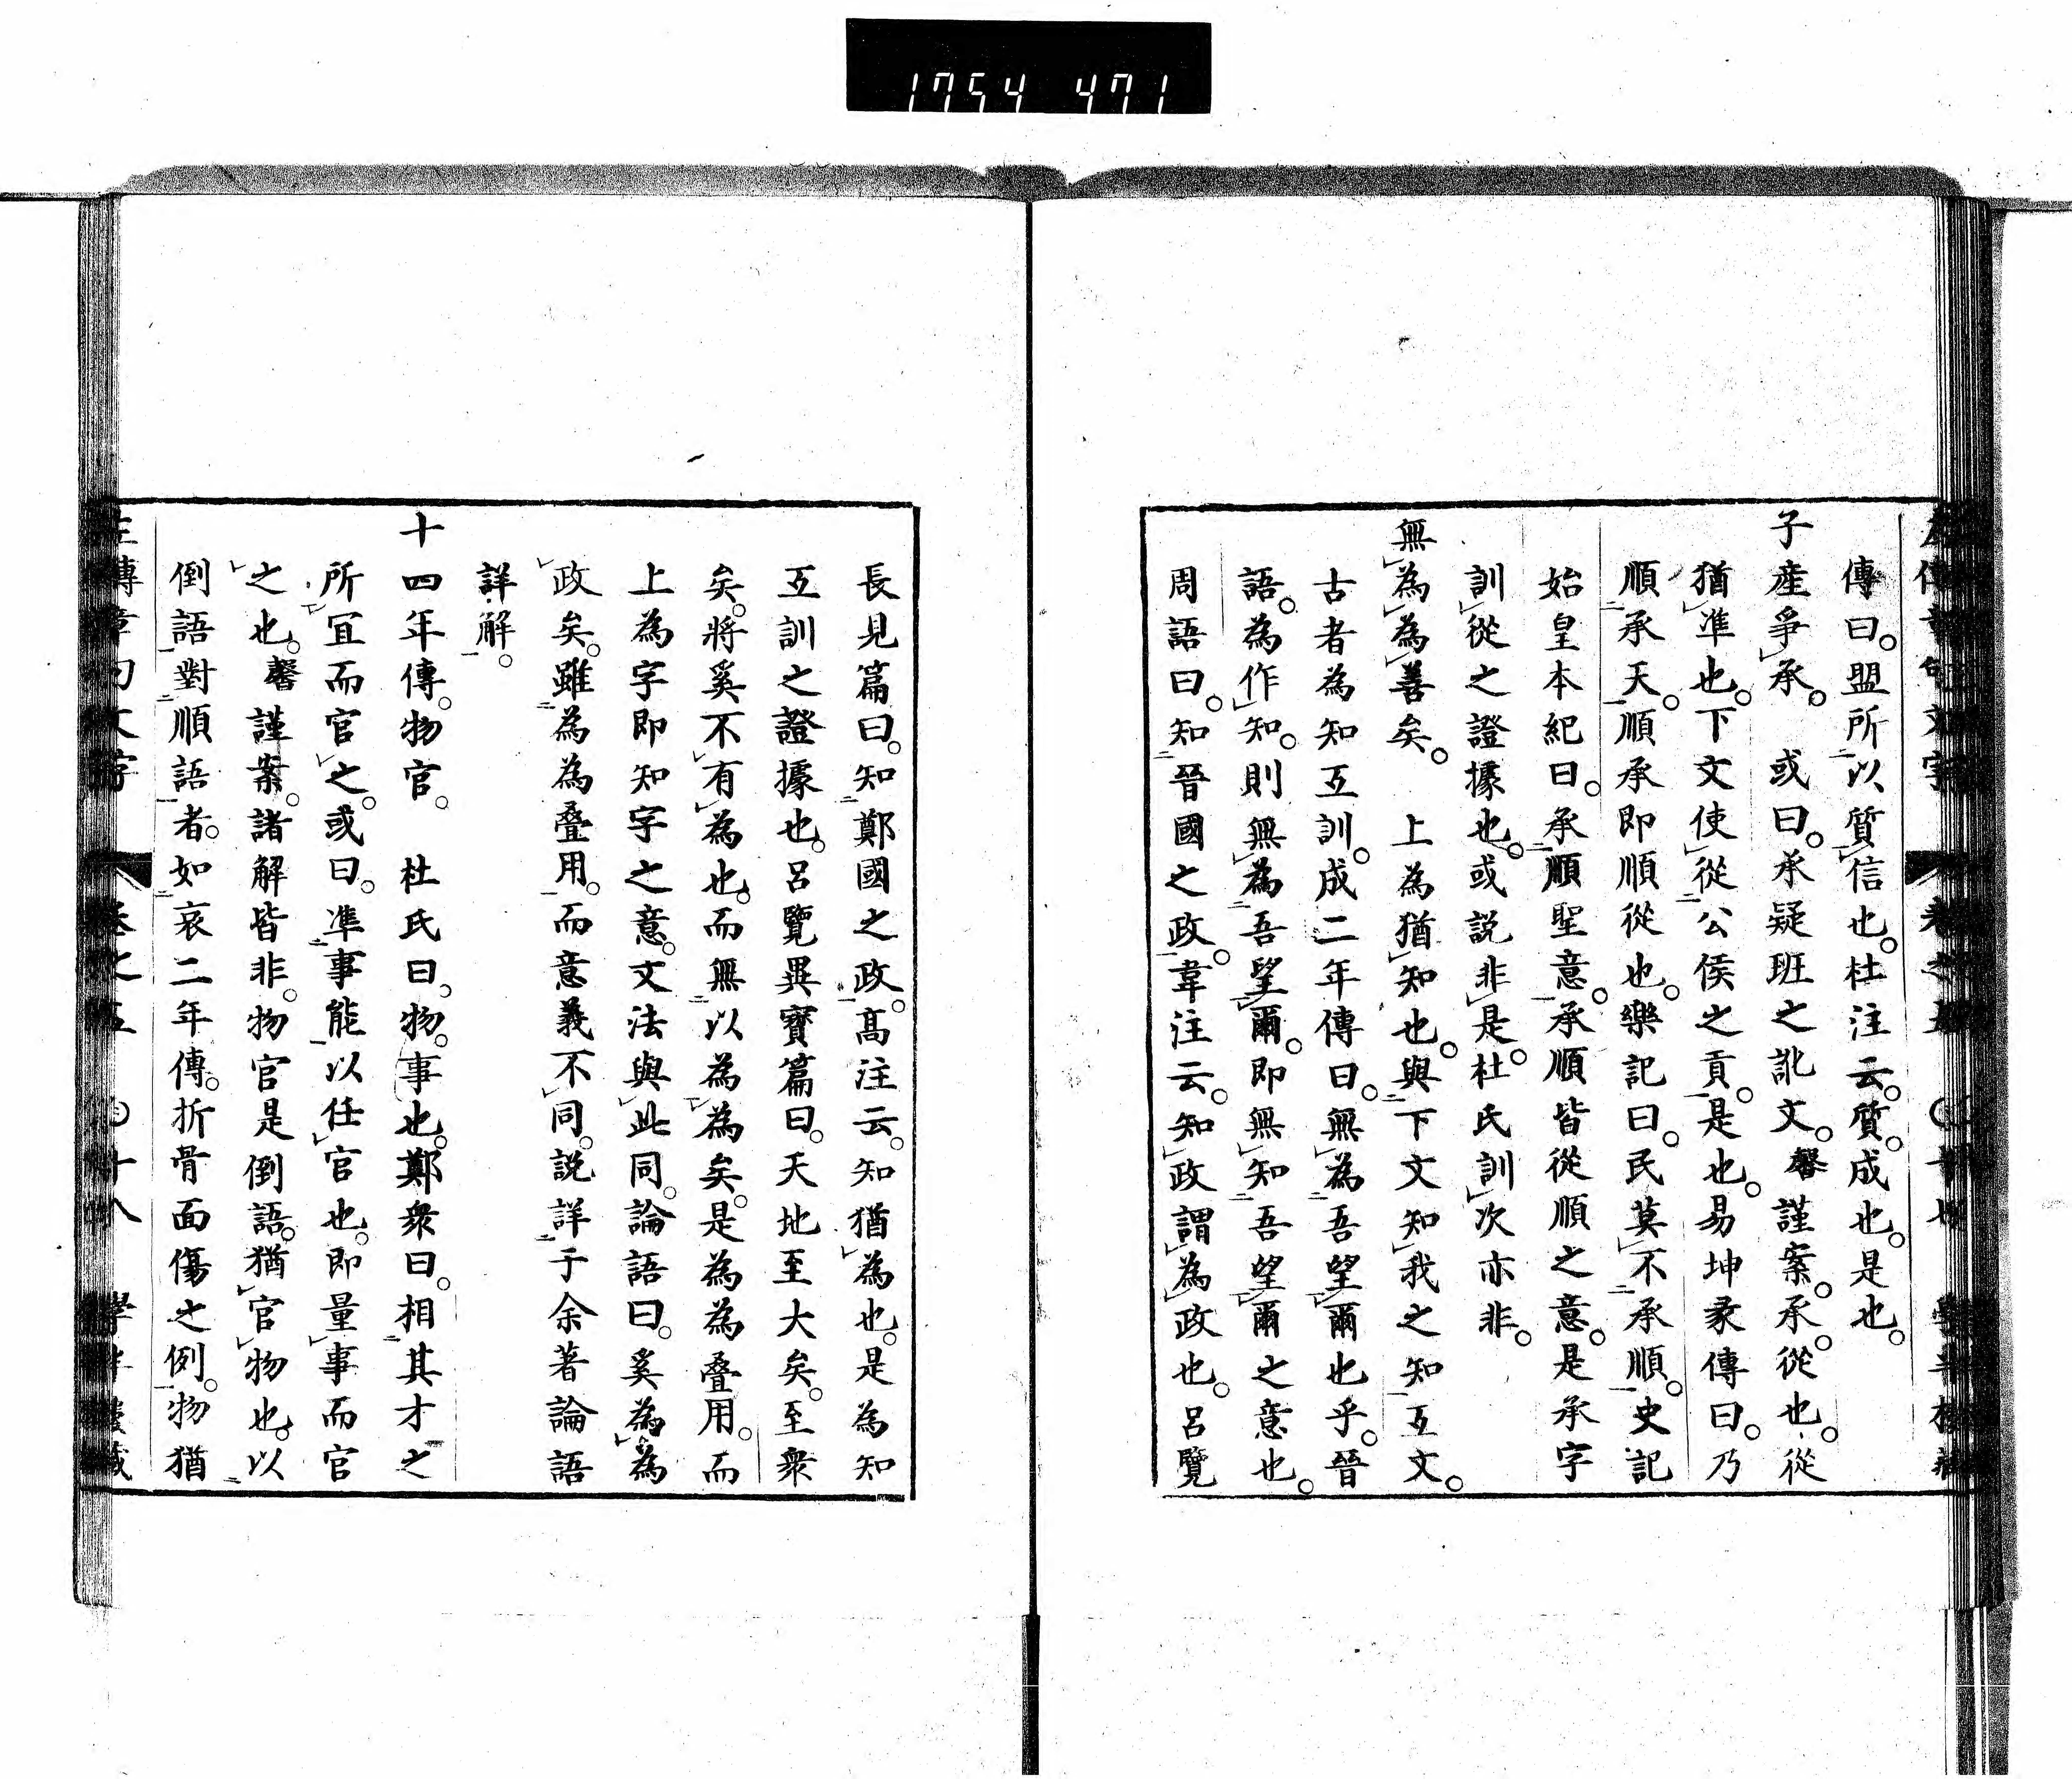 1754 471
傳曰。盟所以質信也。杜注云。質。成也。是也。
子産爭承。 或曰。承疑班之訛文。馨謹案。承。從也。從
猶準也。下文使從公侯之貢。是也。易坤彖傳曰。乃
順承天。順承即順從也。樂記曰。民莫不承順。史記
始皇本紀曰。承順聖意。承順皆從順之意。是承字
訓從之證據也。或説非是。杜氏訓次亦非。
無為為善矣。 上為猶知也。與下文知我之知互文。
古者為知互訓。成二年傳曰。無為吾望爾也乎。晉
語。為作知。則無為吾望爾。即無知吾望爾之意也。
周語曰。知晉國之政。韋注云。知政謂為政也。呂覽
長見篇曰。知鄭國之政。高注云。知猶為也。是為知
互訓之證據也。呂覽異寶篇曰。天地至大矣。至衆
矣。將奚不有為也。而無以為為矣。是為為疊用。而
上為字即知字之意。文法與此同。論語曰。奚為為
政矣。雖為為疊用。而意義不同。説詳于余著論語
詳解。
十四年傳。物官。 杜氏曰。物。事也。鄭衆曰。相其才之
所宜而官之。或曰。準事能以任官也。即量事而官
之也。馨謹案。諸解皆非。物官是倒語。猶官物也。以
倒語對順語者。如哀二年傳。折骨面傷之例。物猶